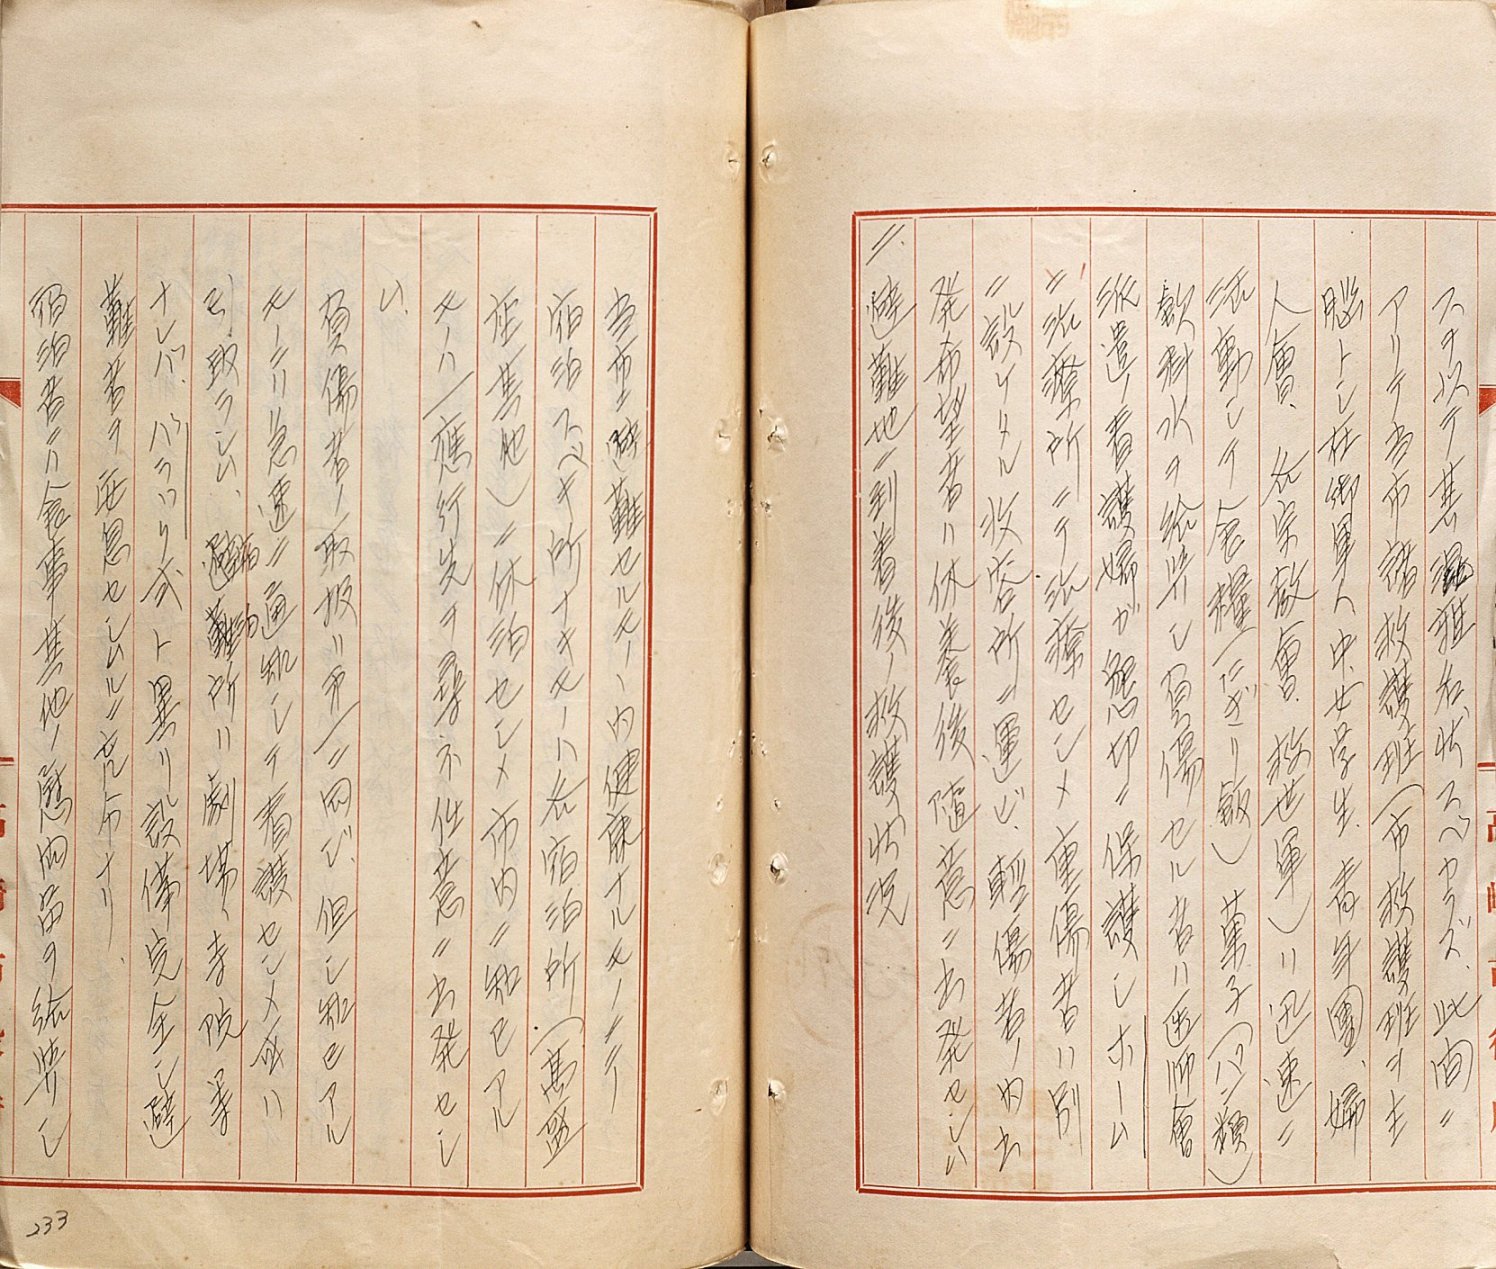 スヲ以テ其混雑名状スベカラズ、此間ニ
アリテ当市諸救護班(市救護班ヲ主
脳トシ在郷軍人中、女学生、青年團、婦
人會、各宗教會、救世軍)ハ迅速ニ
活動シテ食糧(にぎり飯)菓子(パン類)
飲料水ヲ給與シ負傷セル者ハ医師會
派遣ノ看護婦ガ懇切ニ保護シホーム
ニ治療所ニテ治療セシメ重傷者ハ別
ニ設ケタル收容所ニ運ビ、輕傷者ノ内出
発希望者ハ休養後随意ニ出発セシム
二、避難地ニ到着後ノ救護状況
当市ニ避難セルモノヽ内健康ナルモノニテ
宿泊スベキ所ナキモノハ各宿泊所(高盛
座其他)ニ休泊セシメ市内ニ知己アル
モノハ一應行先ヲ尋ネ任意ニ出発セシ
ム、
負傷者ノ取扱ハ市一ニ同ジ、但シ知己アル
モノニハ急速ニ通知シテ看護セシメ或ハ
引取ラシム、避難所ハ劇場、寺院等
ナレバ、バラツク式ト異リ設備完全シ避
難者ヲ安息セシムルニ充分ナリ、
宿泊者ニハ食事其他ノ慰問品ヲ給與シ
233